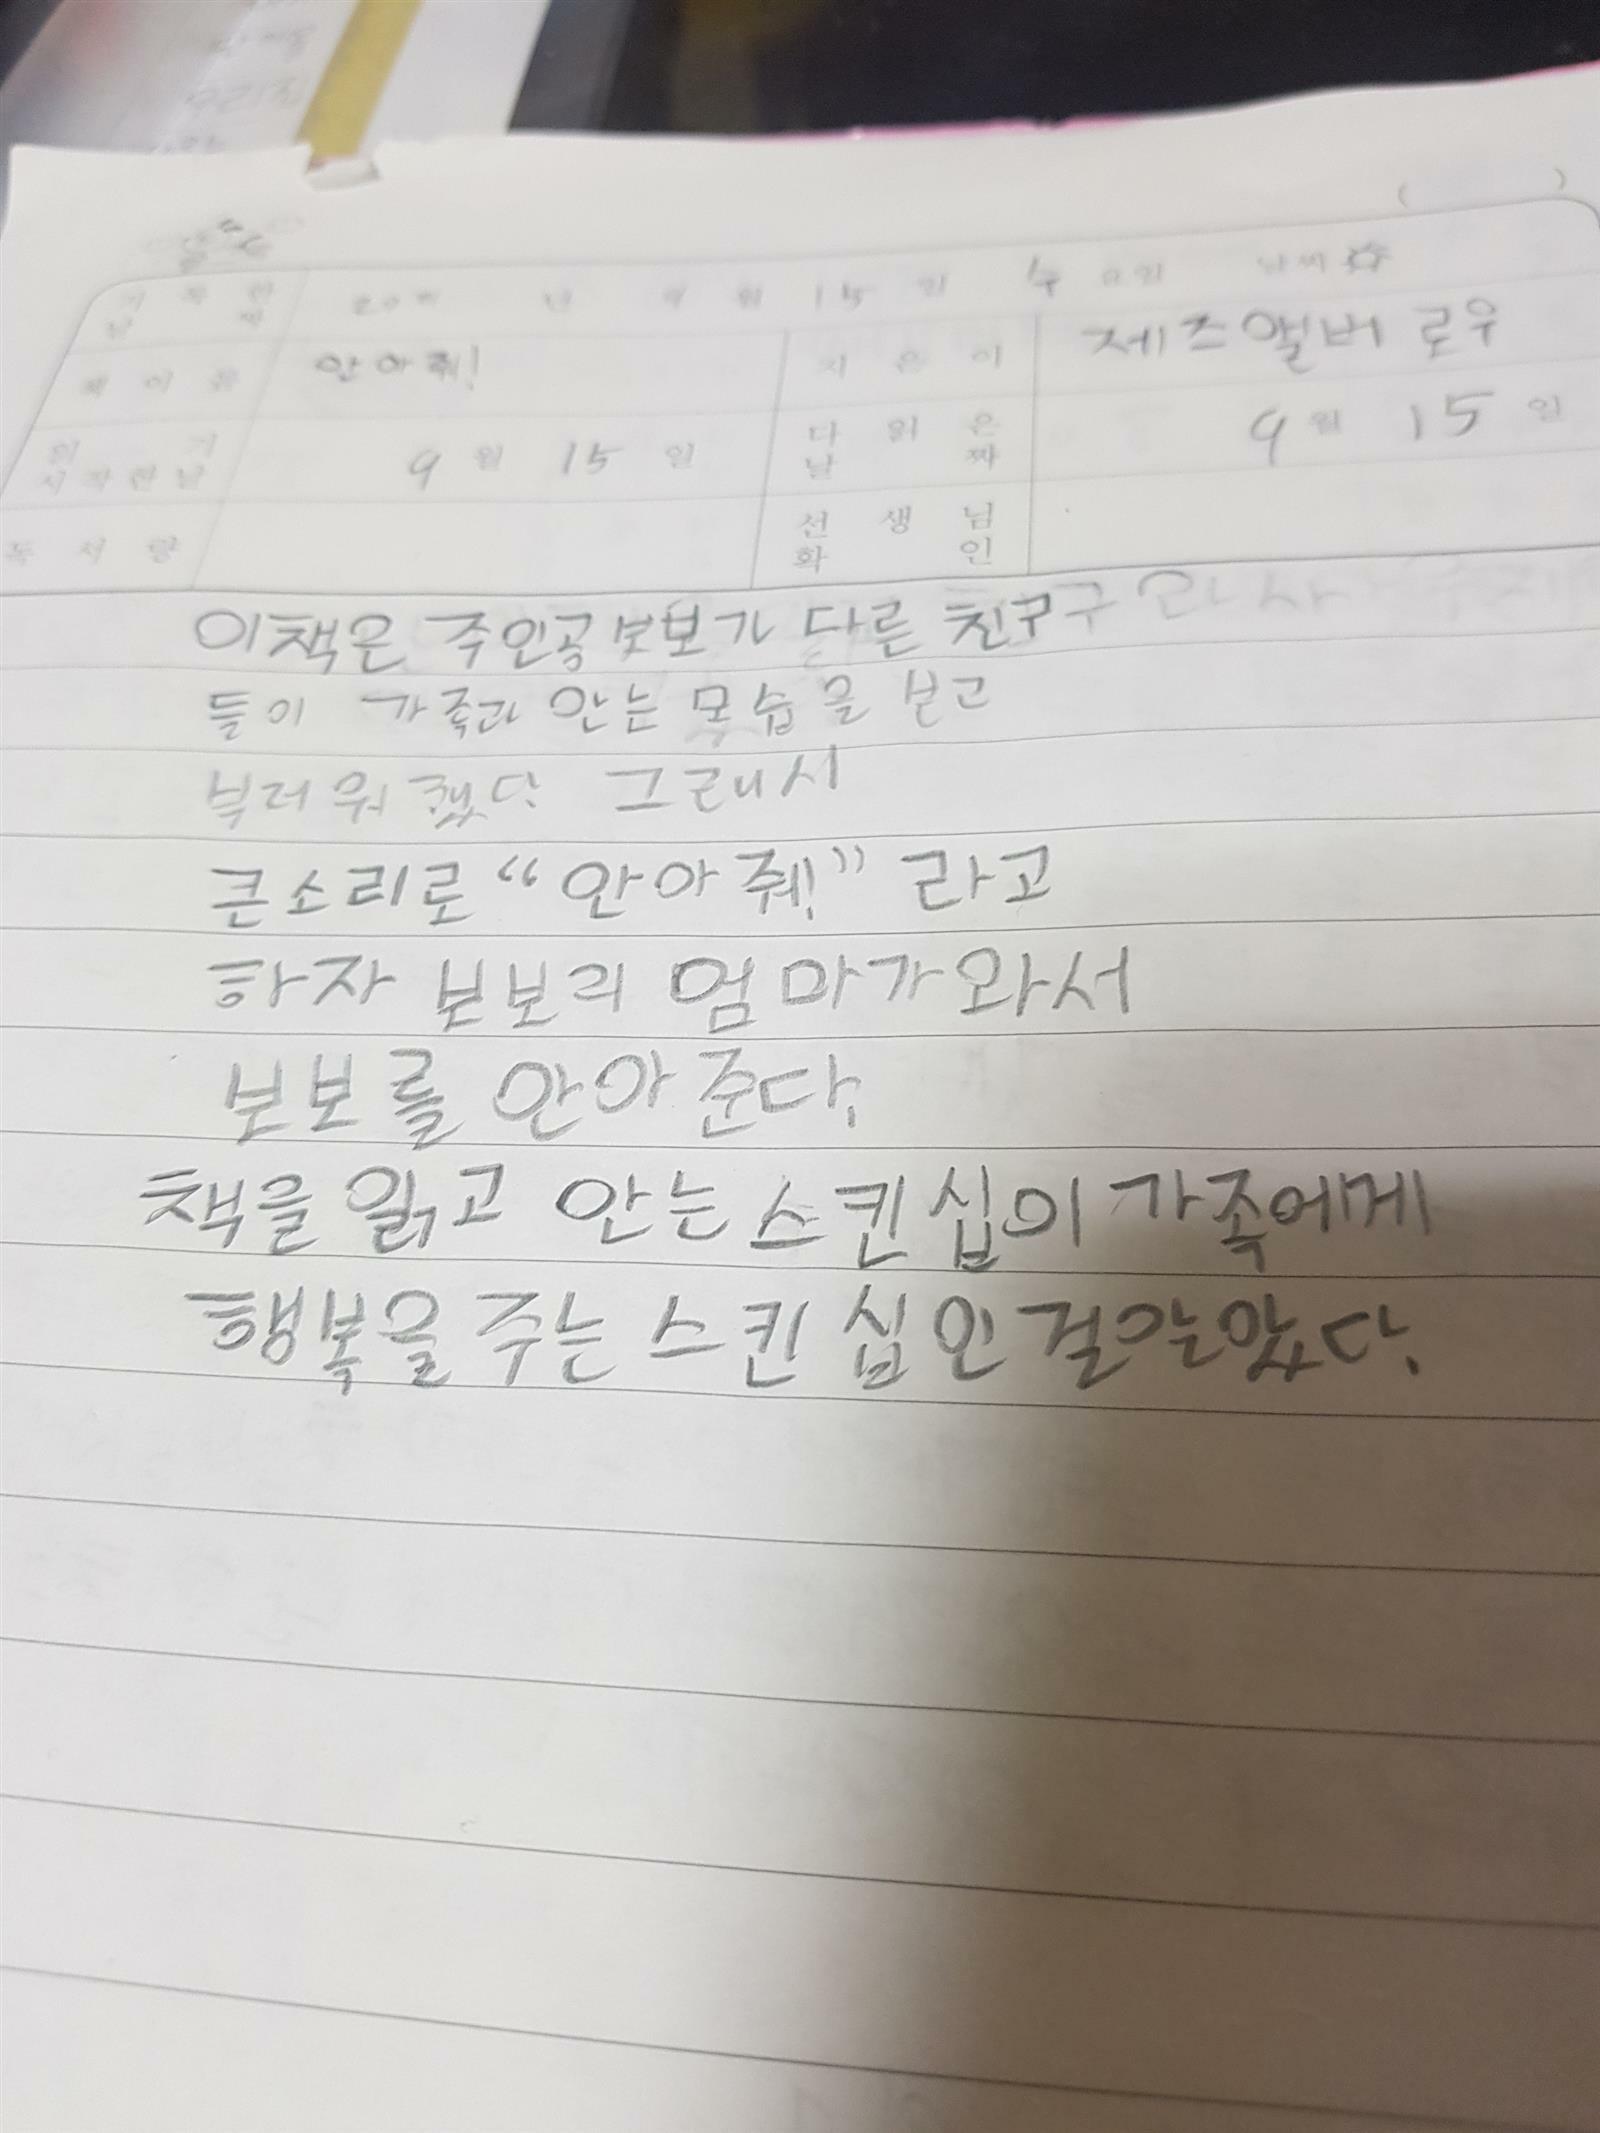 년 9 월 15 일 수 요일 날씨
책 이 름 안아줘! 지 은 이 제즈앨버로우
읽 기
시 작 한 날 9 월 15 일 다 읽 은
날 짜 9 월 15 일
독 서 량 선 생 님
확 인
이책은 주인공보보가 다른 친구
들이 가족과 안는 모습을 보고
부러워했다. 그래서
큰소리로 “안아줘!” 라고
하자 보보의 엄마가와서
보보를 안아준다.
책을 읽고 안는스킨십이 가족에게
행복을 주는스킨십인걸알았다.